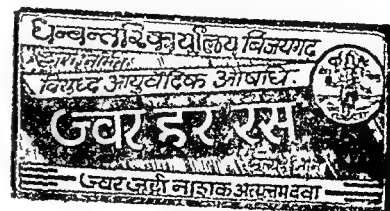 धन्वन्तरि कार्यालय विजयगढ
विशुध्द आयुर्वेदिक औषधि.
ज्वर हर रस
ज्वर जूडी नाशक अत्युत्तम दवा